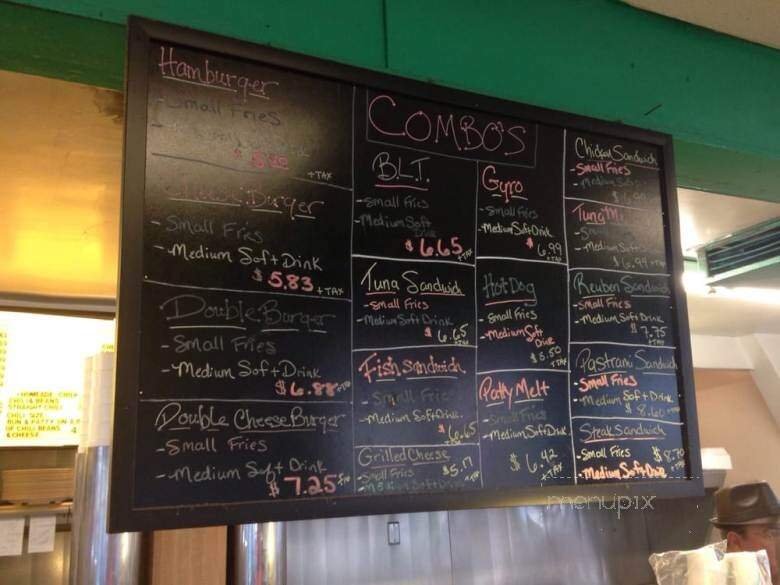 COMBO'S
Hamburger
- Small Fries
+ TAX
Burger
- Small Fries
- Medium Soft Drink
$5.83 + TAX
Double Burger
- Small Fries
- Medium Soft Drink
$6.88 + TAX
Double Cheese Burger
- Small Fries
- Medium Soft Drink
$7.25 + TAX
B.L.T.
- Small Fries
- Medium Soft
Drink
$6.65
+ TAX
Tuna Sandwich
- Small Fries
- Medium Soft Drink
$6.65
+ TAX
Fish Sandwich
- Small Fries
- Medium Soft Drink
$6.65
+ TAX
Grilled Cheese
- Small Fries $5.17
- Medium Soft Drink + TAX
Gyro
- Small Fries
- Medium Soft Drink
$6.99
+ TAX
Hot Dog
- Small Fries
- Medium Soft
Drink
$5.50
+ TAX
Patty Melt
- Small Fries
- Medium Soft Drink
$6.42
+ TAX
Chicken Sandwich
- Small Fries
- Medium
Tuna
- Medium Soft
$6.99 + TAX
Reuben Sandwich
- Small Fries
- Medium Soft Drink
$7.75
+ TAX
Pastrami Sandwich
- Small Fries
- Medium Soft Drink
$8.60 + TAX
Steak Sandwich
- Small Fries $8.70
- Medium Soft Drink + TAX
CHILI & BEANS
STRAIGHT CHILI
CHILI SIZE
BUN & PATTY ON A
OF CHILI BEANS
& CHEESE
menupix